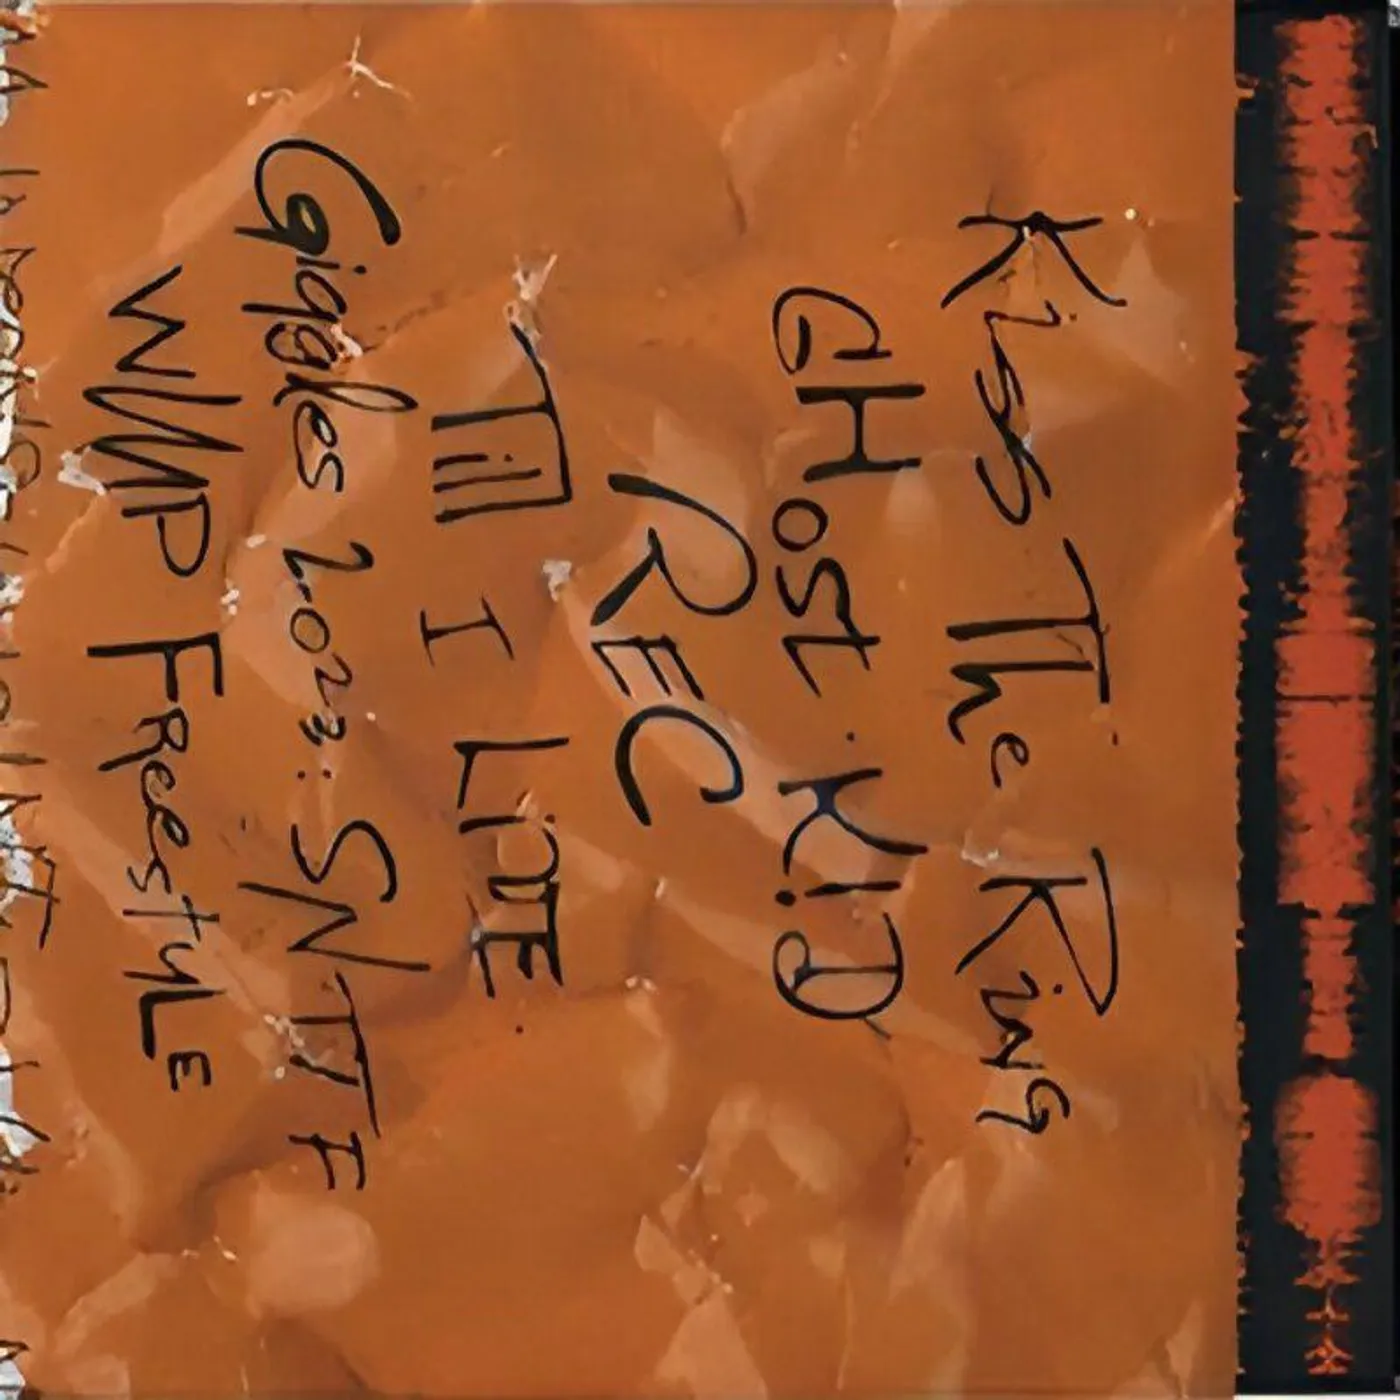 Kiss The Ring
GHost.K!D
REC
Till I LiDE.
Giggles 2023: SNTF
WMP FReestyLE